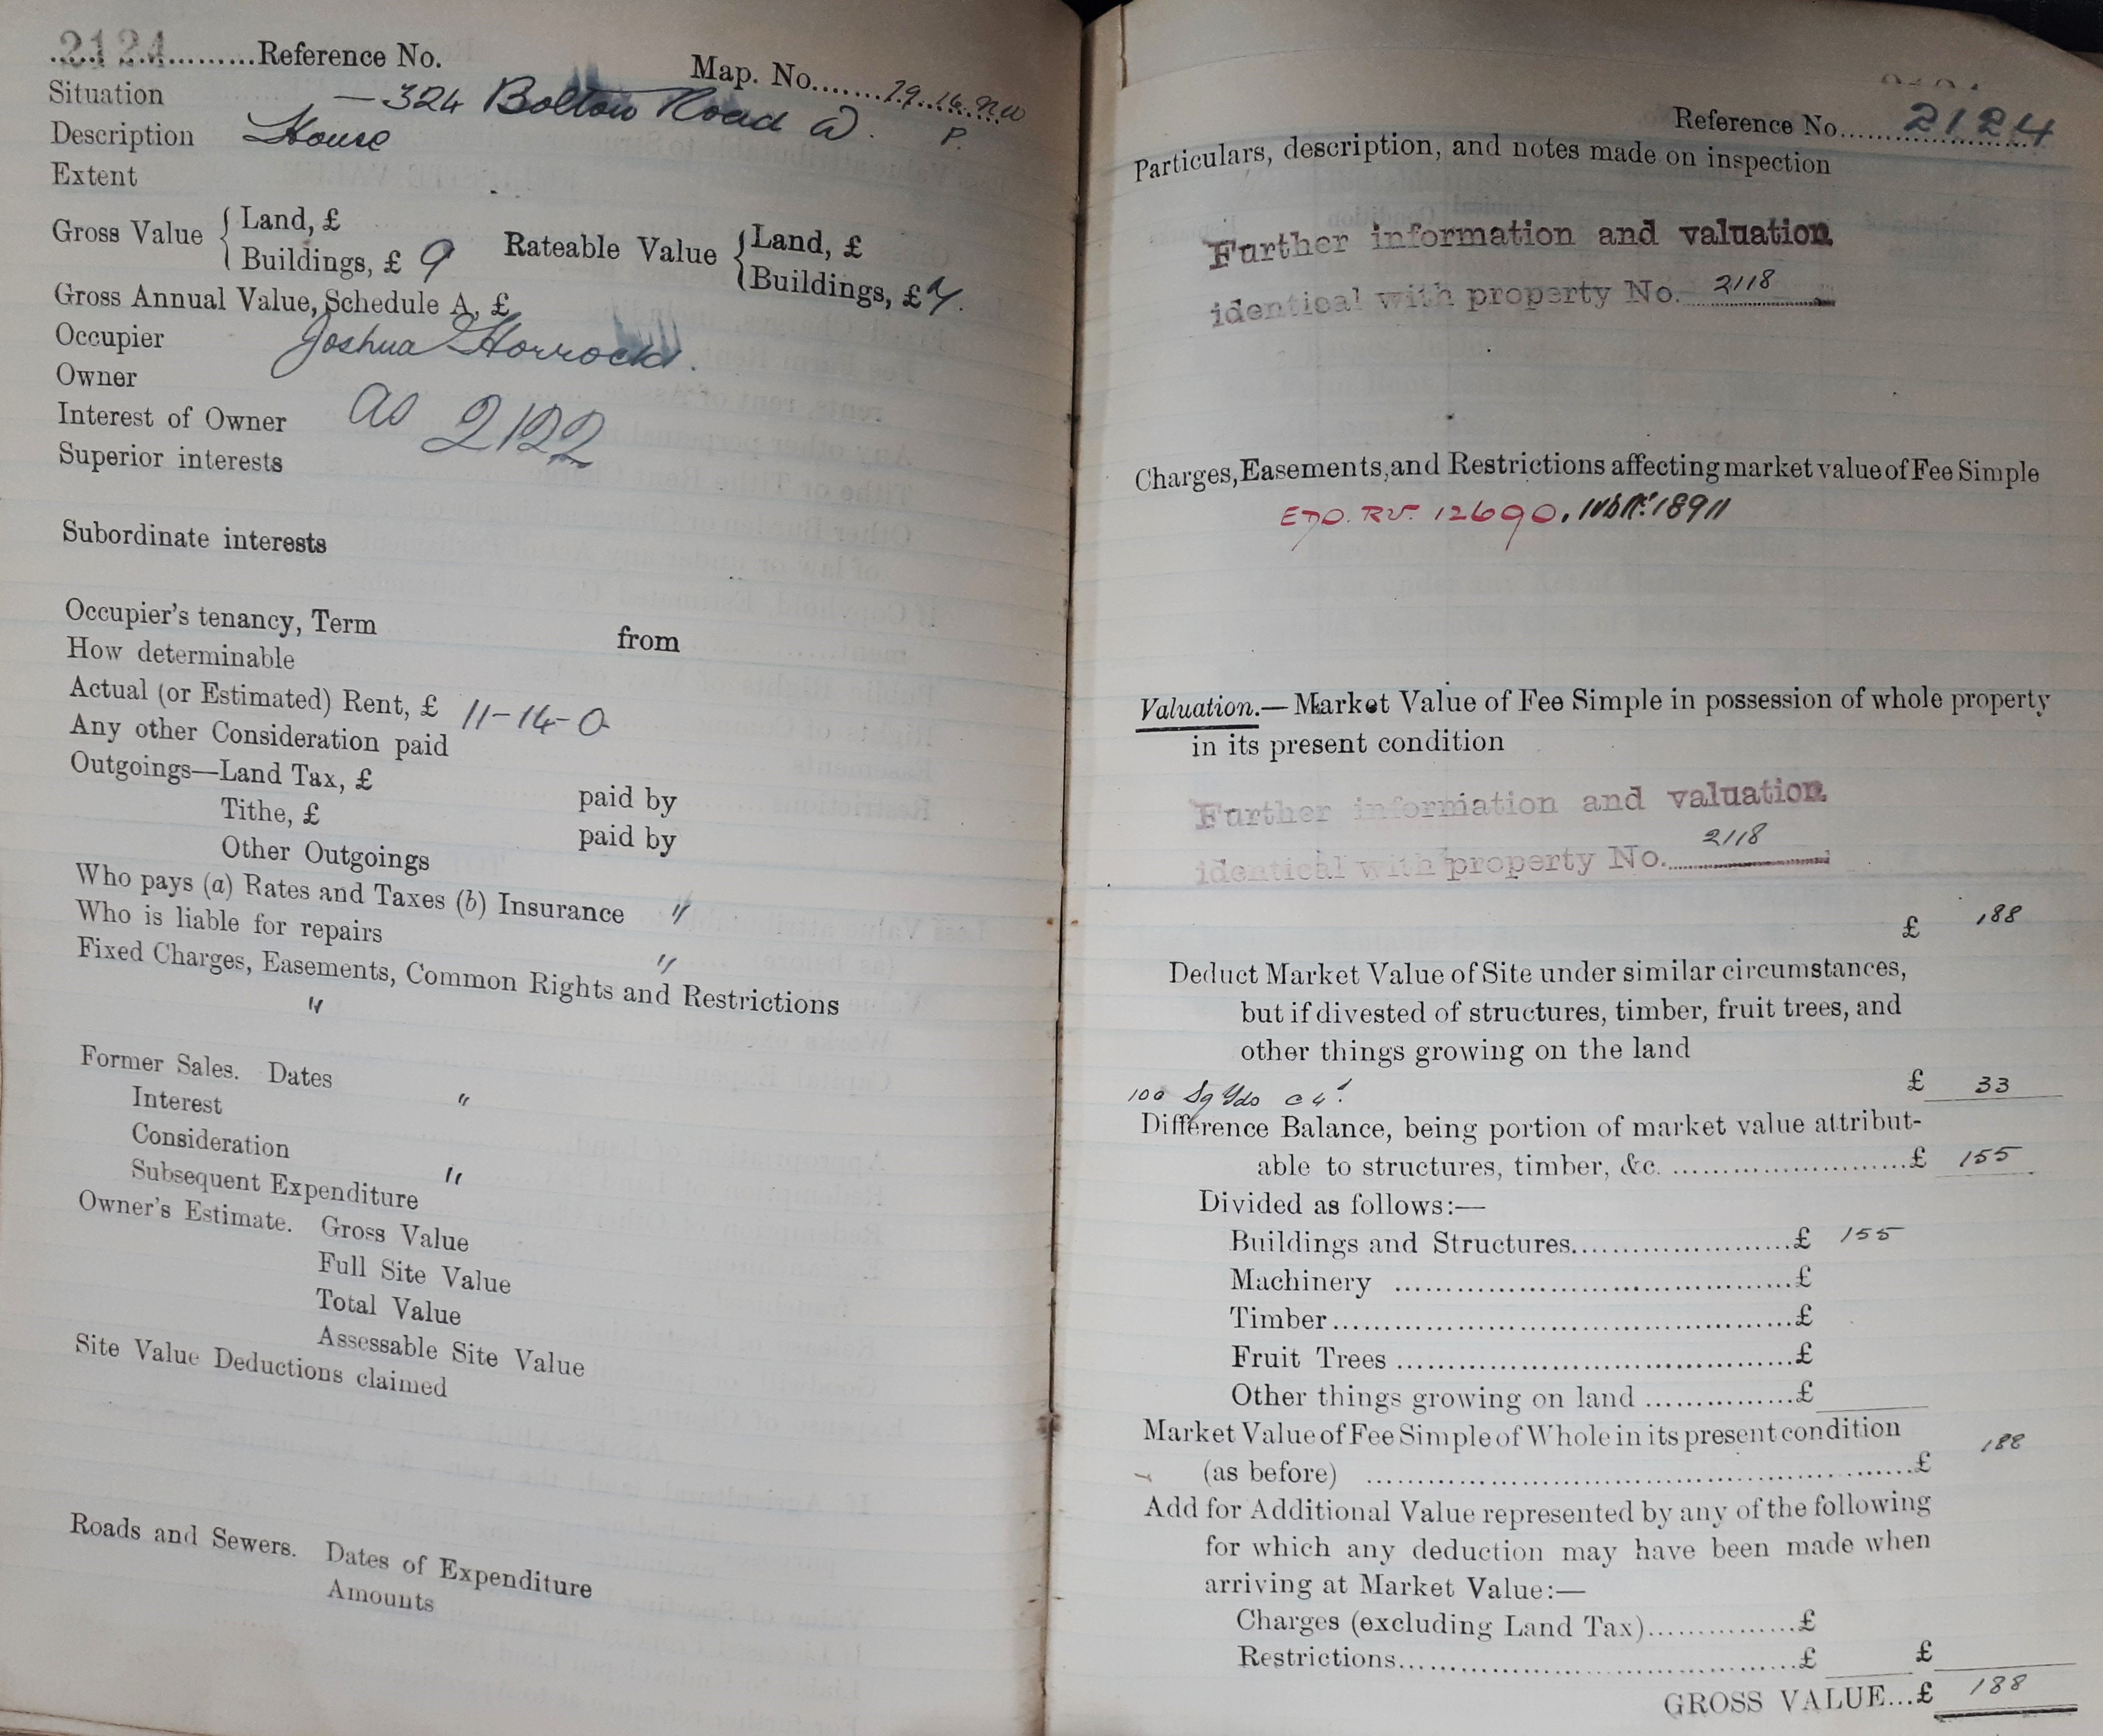 2124..........Reference No.
Map. No.......79.16.NW
P.
Situation —324 Bolton Road W.
Description House
Extent
Gross Value { Land, £
Buildings, £ 9
Rateable Value { Land, £
Buildings, £ 7.
Gross Annual Value, Schedule A, £
Occupier Joshua Horrocks.
Owner
Interest of Owner as 2122
Superior interests
Subordinate interests
Occupier's tenancy, Term from
How determinable
Actual (or Estimated) Rent, £ 11-14-0
Any other Consideration paid
Outgoings—Land Tax, £ paid by
Tithe, £ paid by
Other Outgoings
Who pays (a) Rates and Taxes (b) Insurance "
Who is liable for repairs "
Fixed Charges, Easements, Common Rights and Restrictions
"
Former Sales. Dates
Interest "
Consideration
Subsequent Expenditure "
Owner's Estimate. Gross Value
Full Site Value
Total Value
Assessable Site Value
Site Value Deductions claimed
Roads and Sewers. Dates of Expenditure
Amounts
Reference No. 2124
Particulars, description, and notes made on inspection
Further information and valuation
identical with property No. 2118
Charges, Easements, and Restrictions affecting market value of Fee Simple
12690. 1891
Valuation.—Market Value of Fee Simple in possession of whole property
in its present condition
Further information and valuation
identical with property No. 2118
£ 188
Deduct Market Value of Site under similar circumstances,
but if divested of structures, timber, fruit trees, and
other things growing on the land
100 Sq Yds @ 4/ £ 33
Difference Balance, being portion of market value attribut-
able to structures, timber, &c. ..........................£ 155
Divided as follows:—
Buildings and Structures.......................£ 155
Machinery ...........................................£
Timber..................................................£
Fruit Trees ...........................................£
Other things growing on land ...............£
Market Value of Fee Simple of Whole in its present condition
(as before) ..........................................................£ 188
Add for Additional Value represented by any of the following
for which any deduction may have been made when
arriving at Market Value:—
Charges (excluding Land Tax)...............£
Restrictions...........................................£ £
GROSS VALUE...£ 188